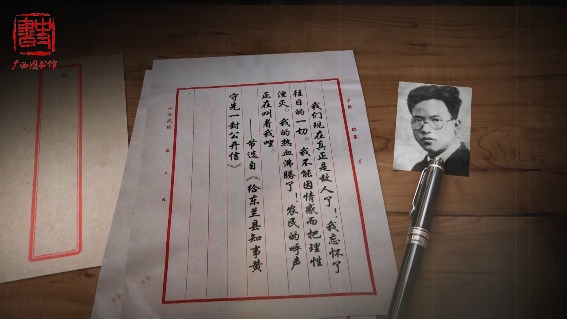 广西图书馆
我们现在真正是敌人了！我忘怀了
往日的一切。我不能因情感而把理性
湮灭。我的热血沸腾了！农民的呼声
正在叫着我哩。
——节选自《给东兰县知事黄
守先一封公开信》